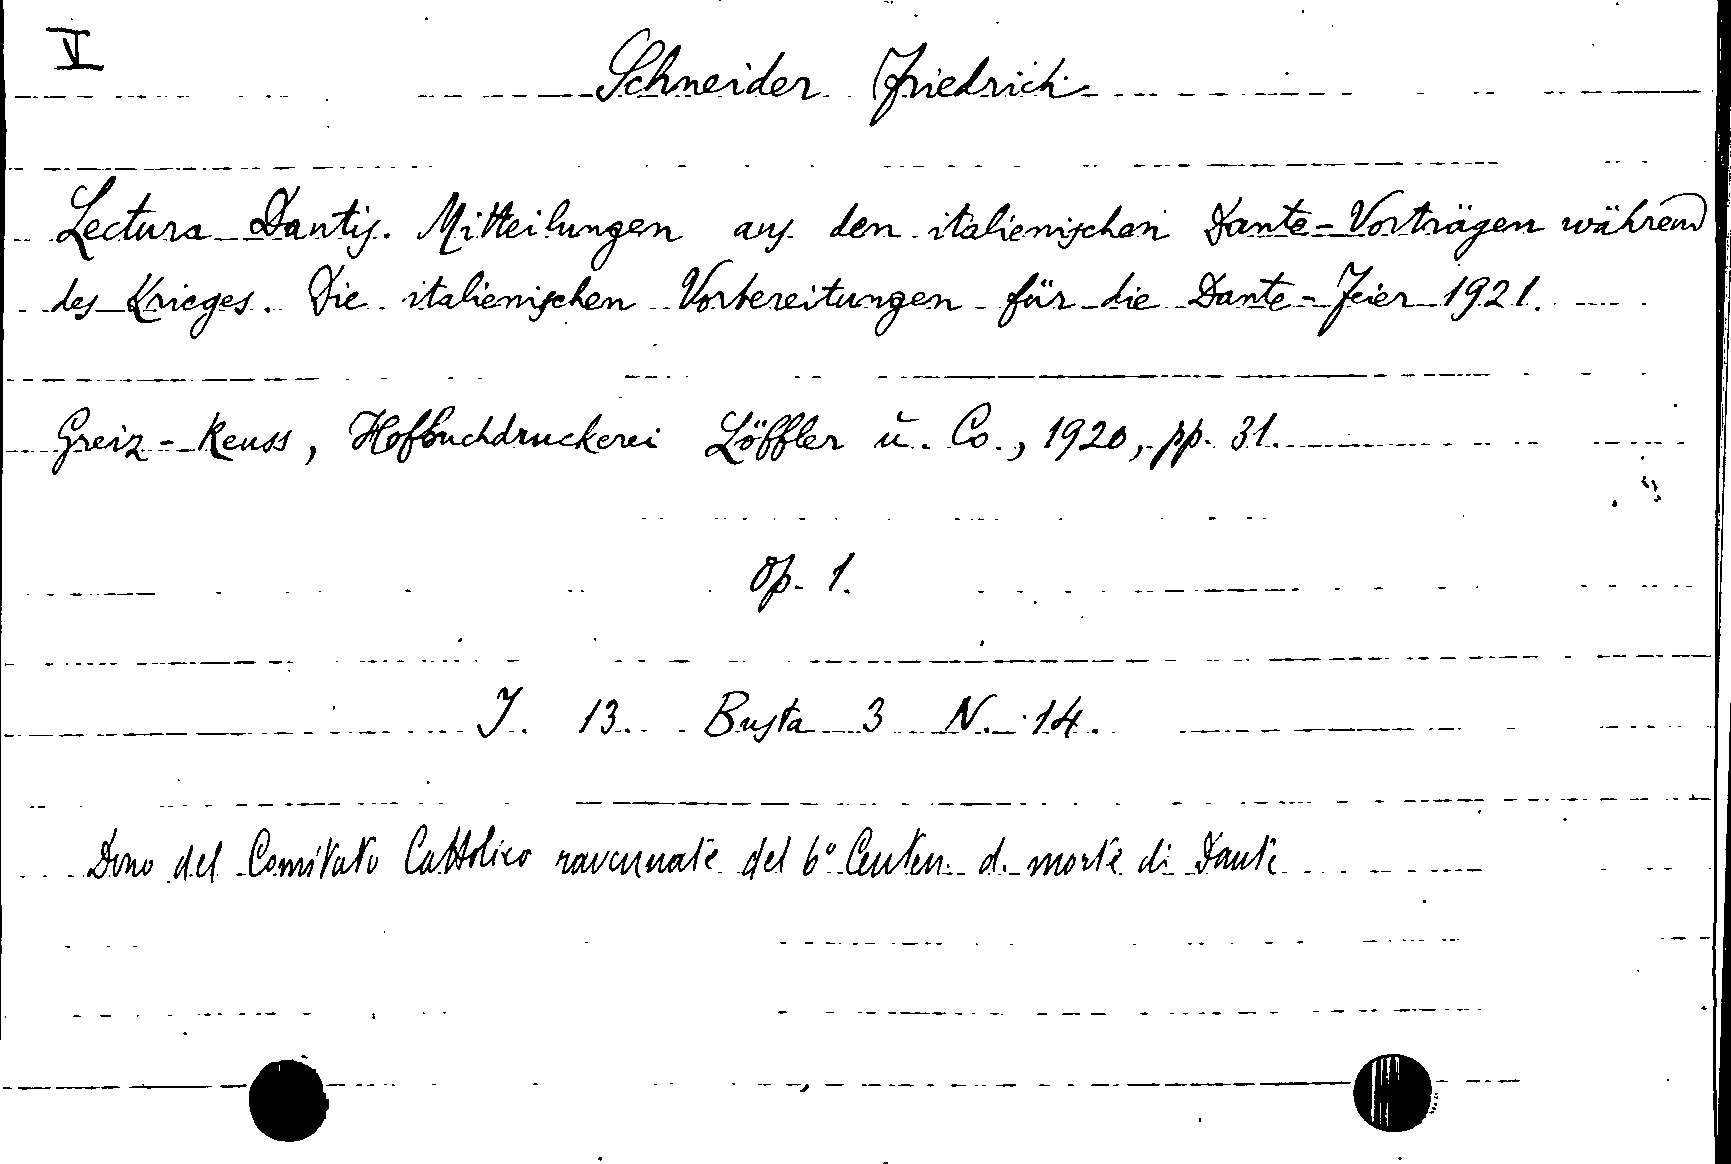 V
Schneider Friedrich
Lectura Dantis. Mitteilungen aus den italienischen Dante-Vorträgen während
des Krieges. Die italienischen Vorbereitungen für die Dante-Feier 1921.
Greiz-Reuss, Hofbuchdruckerei Löffler u. Co., 1920, pp. 31.
Op. 1.
I. 13. Busta 3 N. 14.
Dono del Comitato Cattolico ravennate del 6° Centen. d. morte di Dante